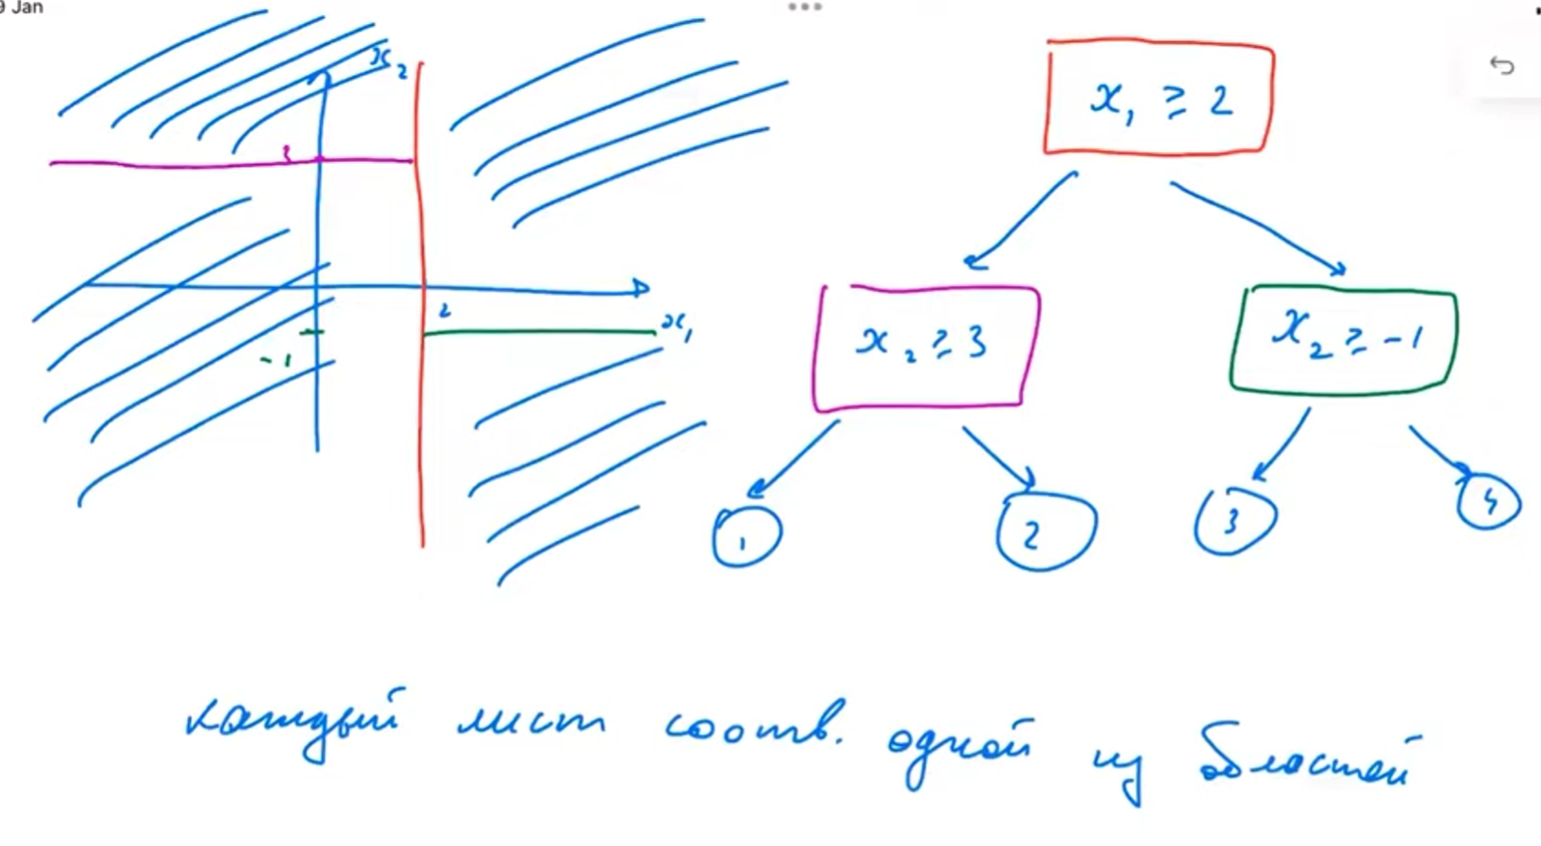 9 Jan
x₂
x₁ ≥ 2
3
2
x₁
-1
x₂ ≥ 3
x₂ ≥ -1
1
2
3
4
каждый лист соотв. одной из областей